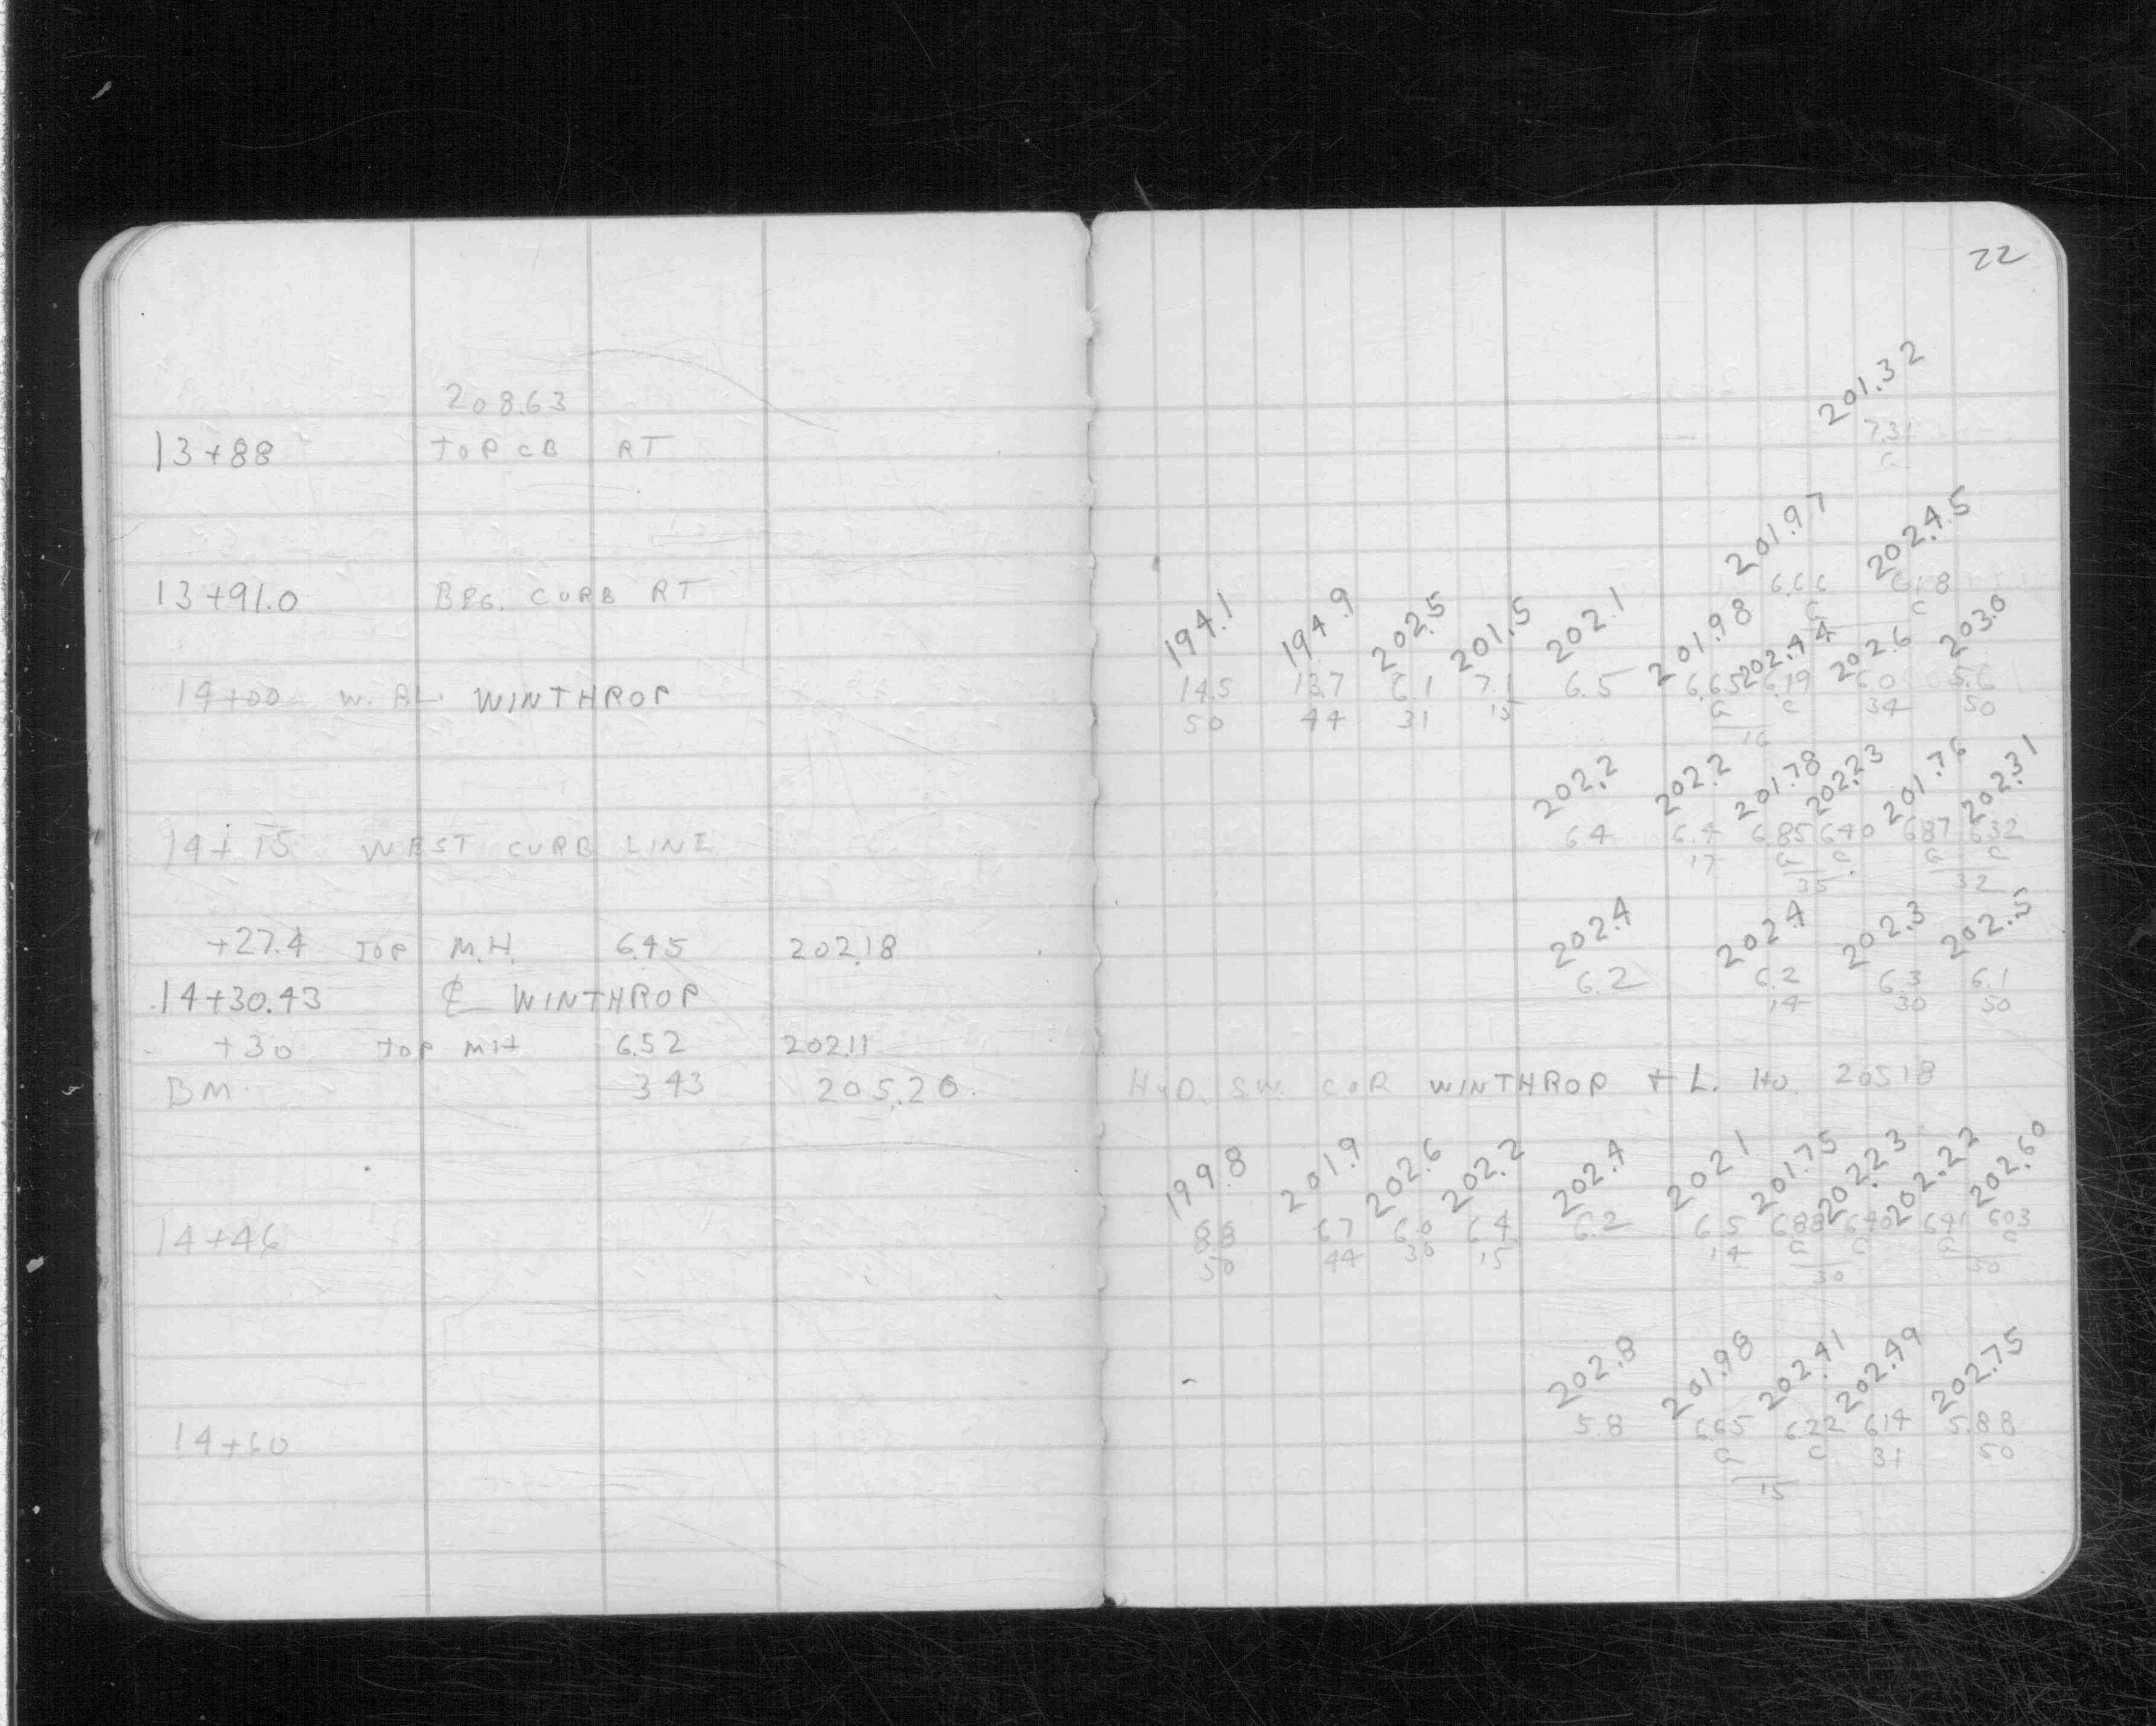 22
208.63
13+88 TOP CB RT
201.32
7.31
G
13+91.0 BEG. CURB RT
201.97 202.45
6.66 6.18
G C
14+00 W. P.L. WINTHROP
194.1 194.9 202.5 201.5 202.1 201.98 202.44 202.6 203.0
14.5 13.7 6.1 7.1 6.5 6.65 6.19 6.0 5.6
50 44 31 15 G C 34 50
16
14+15 WEST CURB LINE
202.2 202.2 201.78 202.23 201.76 202.31
6.4 6.4 6.85 6.40 6.87 6.32
17 G C G C
35 32
+27.4 TOP M.H. 6.45 202.18
202.4 202.4 202.3 202.5
14+30.43 ℄ WINTHROP
6.2 6.2 6.3 6.1
14 30 50
+30 TOP MH 6.52 202.11
BM 3.43 205.20 HYD. S.W. COR WINTHROP + L. HO. 205.18
199.8 201.9 202.6 202.2 202.4 202.1 201.75 202.23 202.22 202.60
14+46
8.8 6.7 6.0 6.4 6.2 6.5 6.88 6.40 6.41 6.03
50 44 30 15 14 G C G C
30 50
202.8 201.98 202.41 202.49 202.75
14+60
5.8 6.65 6.22 6.14 5.88
G C 31 50
15